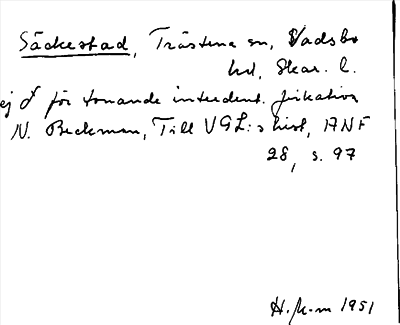 Säckestad, Trästena sn, Vadsbo
hd, Skar. l.
ej ð för tonande interdent. frikativa
N. Beckman, Till VGL:s hist, ANF
28, s. 97
H. 1951